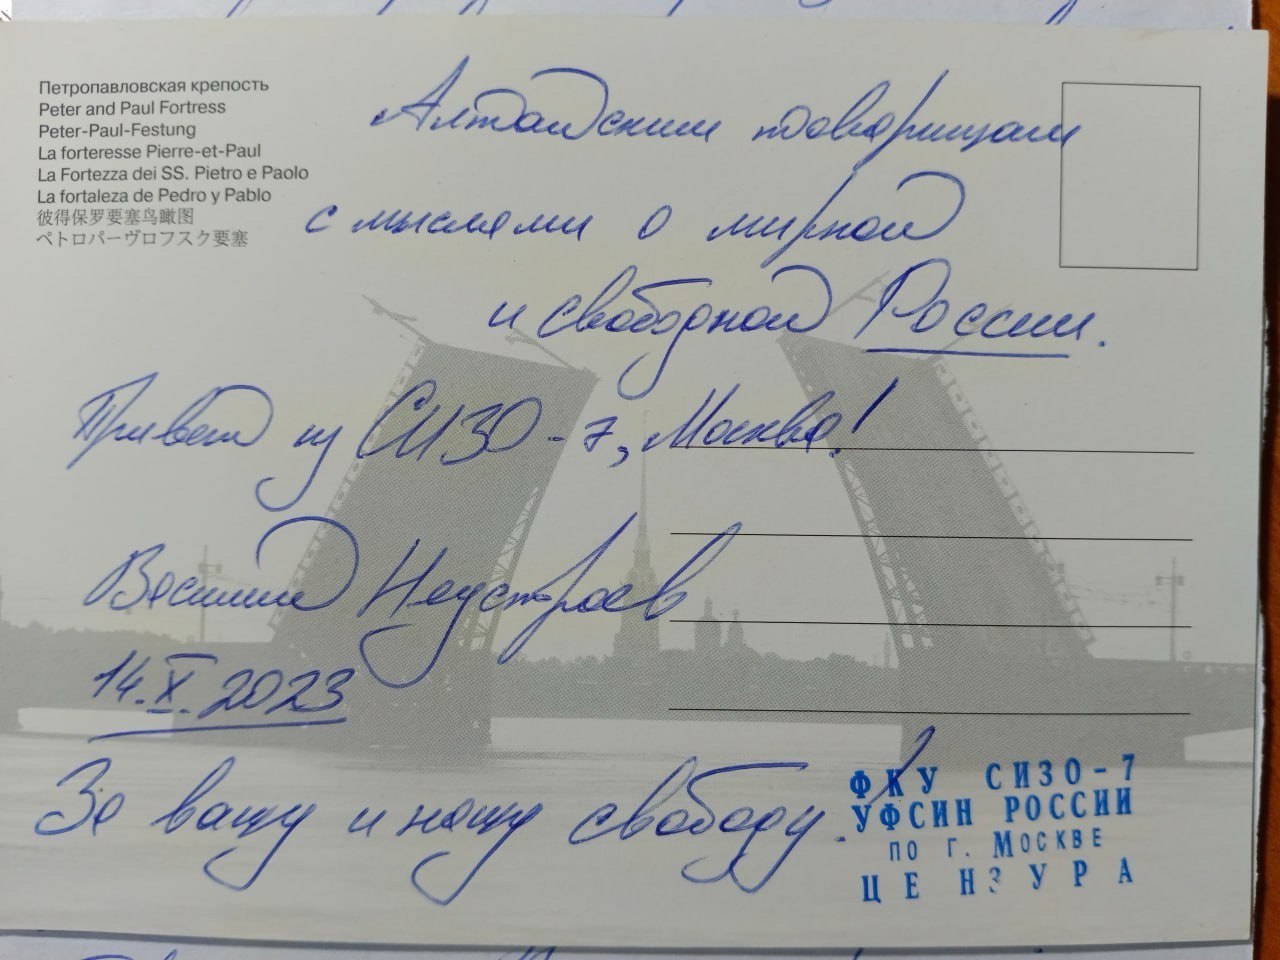 Петропавловская крепость
Peter and Paul Fortress
Peter-Paul-Festung
La forteresse Pierre-et-Paul
La Fortezza dei SS. Pietro e Paolo
La fortaleza de Pedro y Pablo
彼得保罗要塞鸟瞰图
ペトロパーヴロフスク要塞
Алтайским товарищам
с мыслями о мирной
и свободной России.
Привет из СИЗО-7, Москва!
Василий Неустроев
14.X.2023
За вашу и нашу свободу!
ФКУ СИЗО-7
УФСИН РОССИИ
ПО Г. МОСКВЕ
ЦЕНЗУРА